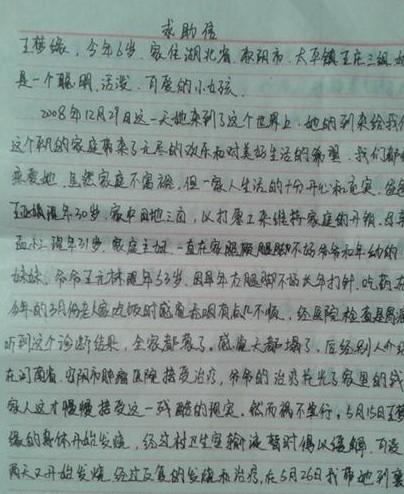 求助信
王梦缘，今年6岁．家住湖北省．枣阳市．太平镇王庄三组．她
是一个聪明．活泼．可爱的小女孩．
2008年12月29日这一天她来到了这个世界上．她的到来给我们
这个平凡的家庭带来了无尽的欢乐和对美好生活的希望．我们都很
疼爱她．虽然家庭不富裕．但一家人生活的十分开心和充实．爸爸
现年30岁．家中田地三亩，以打零工来维持家庭的开销．母亲
现年31岁．家庭主妇．一直在家照顾腿脚不好爷爷和年幼的
妹妹．爷爷王元林现年53岁．因早年右腿脚不好长年打针．吃药．在
今年的3月份老人家吃饭时感觉吞咽有点儿不顺．经医院检查是胃癌
听到这个诊断结果，全家都蒙了．感觉天都塌了，后经别人介绍
在河南省．安阳市肿瘤医院接受治疗，爷爷的治疗花光了家里的钱
家人这才慢慢接受这一残酷的现实．然而祸不单行，5月15日王梦
缘的身体开始发烧．经过村卫生室输液暂时得以缓解．可是
两天又开始发烧．经过反复的发烧和治疗，在5月26日我带她到襄